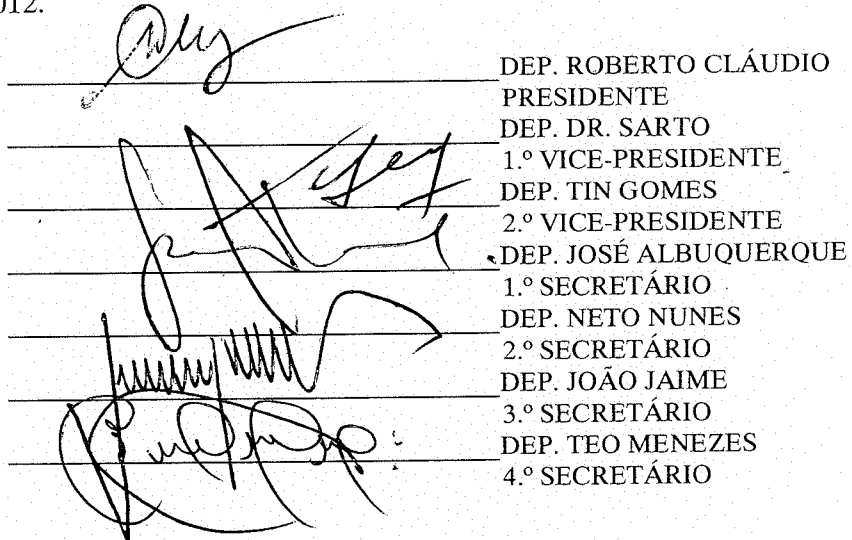 012.
DEP. ROBERTO CLÁUDIO
PRESIDENTE
DEP. DR. SARTO
1.º VICE-PRESIDENTE
DEP. TIN GOMES
2.º VICE-PRESIDENTE
DEP. JOSÉ ALBUQUERQUE
1.º SECRETÁRIO
DEP. NETO NUNES
2.º SECRETÁRIO
DEP. JOÃO JAIME
3.º SECRETÁRIO
DEP. TEO MENEZES
4.º SECRETÁRIO